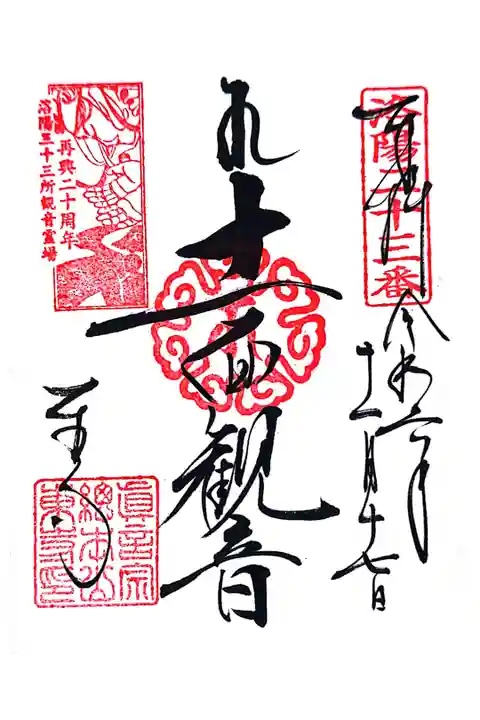 洛陽二十三番
奉拝
令和六年
十一月十七日
十一面観音
再興二十周年
洛陽三十三所観音霊場
東寺
眞言宗
總本山
東寺印